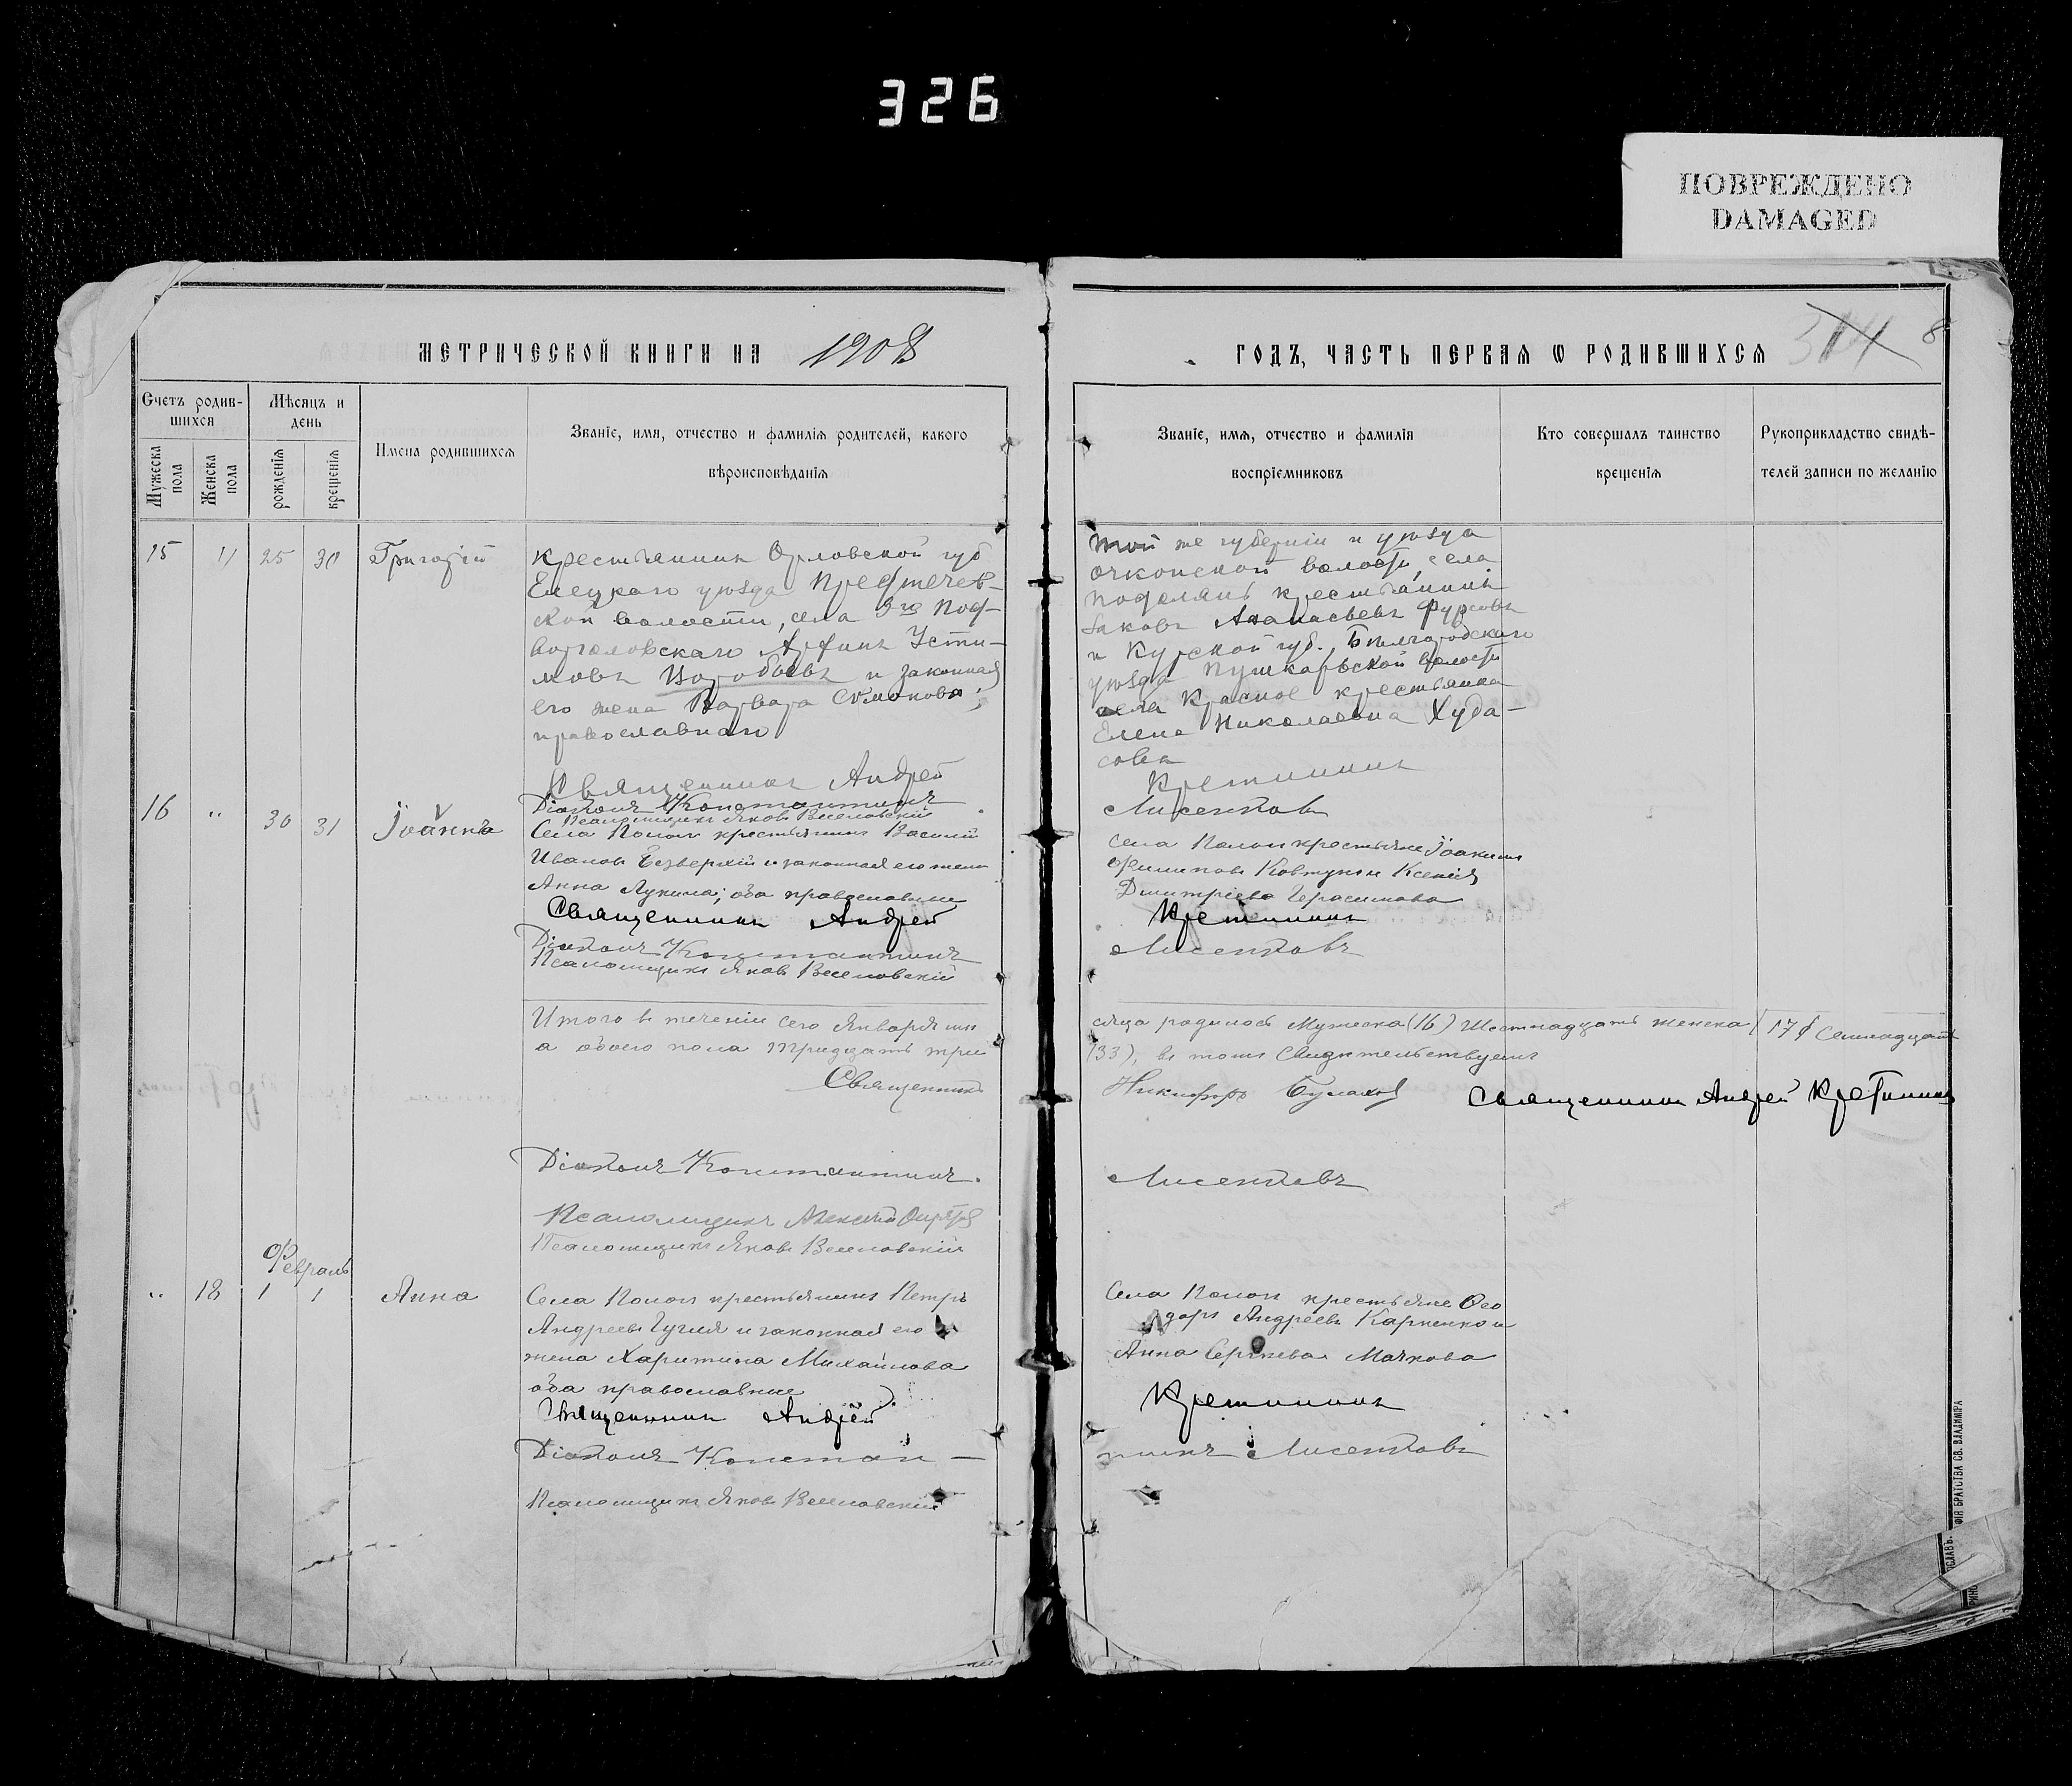 326
ПОВРЕЖДЕНО
DAMAGED
МЕТРИЧЕСКОЙ КНИГИ НА 1908
ГОДЪ, ЧАСТЬ ПЕРВАЯ Ѡ РОДИВШИХСЯ
314 8
Счетъ родив-
шихся
Мѣсяцъ и
день
Мужеска
пола
Женска
пола
рожденія
крещенія
Имена родившихся
Званіе, имя, отчество и фамилія родителей, какого
вѣроисповѣданія
Званіе, имя, отчество и фамилія
воспріемниковъ
Кто совершалъ таинство
крещенія
Рукоприкладство свидѣ-
телей записи по желанію
15 " 25 30 Григорій
крестьянинъ Орловской губ
Елецкаго уѣзда Предтечев-
ской волости, села
Усти-
мовъ Воробьевъ и законная
его жена Варвара
православнаго
Священникъ Андрей
Діаконъ Константинъ
Псаломщикъ Яковъ Веселовскій
той же губерніи и уѣзда
волости, села
крестьянинъ
Яковъ Аѳанасьевъ Фурсовъ
и Курской губ., Бѣлгородскаго
уѣзда Пушкарской волости
села Красное крестьянка
Елена Николаевна Худа-
сова
Кретининъ
Лисенковъ
16 " 30 31 Іоаннъ
Села Попов крестьянинъ Василій
Ивановъ Безверхій и законная его жена
Анна Лукина; оба православные
Священникъ Андрей
Діаконъ Константинъ
Псаломщикъ Яковъ Веселовскій
села Попов крестьяне Іоакимъ
Филиповъ Ковтунъ и Ксенія
Дмитріева Герасимова
Кретининъ
Лисенковъ
Итого въ теченіи сего Января мѣ
сяца родилось мужеска (16) Шестнадцать женска (17) Семнадцать
а обоего пола тридцать три
(33), въ томъ свидѣтельствуемъ
Священникъ
Никифоръ Булахов
Священникъ Андрей Кретининъ
Діаконъ Константинъ
Лисенковъ
Псаломщикъ Алексѣй
Псаломщикъ Яковъ Веселовскій
Февраль
" 18 1 1 Анна
Села Попов крестьянинъ Петръ
Андреевъ Гугля и законная его
жена Харитина Михайлова
оба православные
Священникъ Андрей
Діаконъ Констан-
Псаломщикъ Яковъ Веселовскій
Села Попов крестьяне Ѳео
доръ Андреевъ Карпенко и
Анна Сергѣева Мачкова
Кретининъ
тинъ Лисенковъ
БРАТСТВА СВ. ВЛАДИМІРА